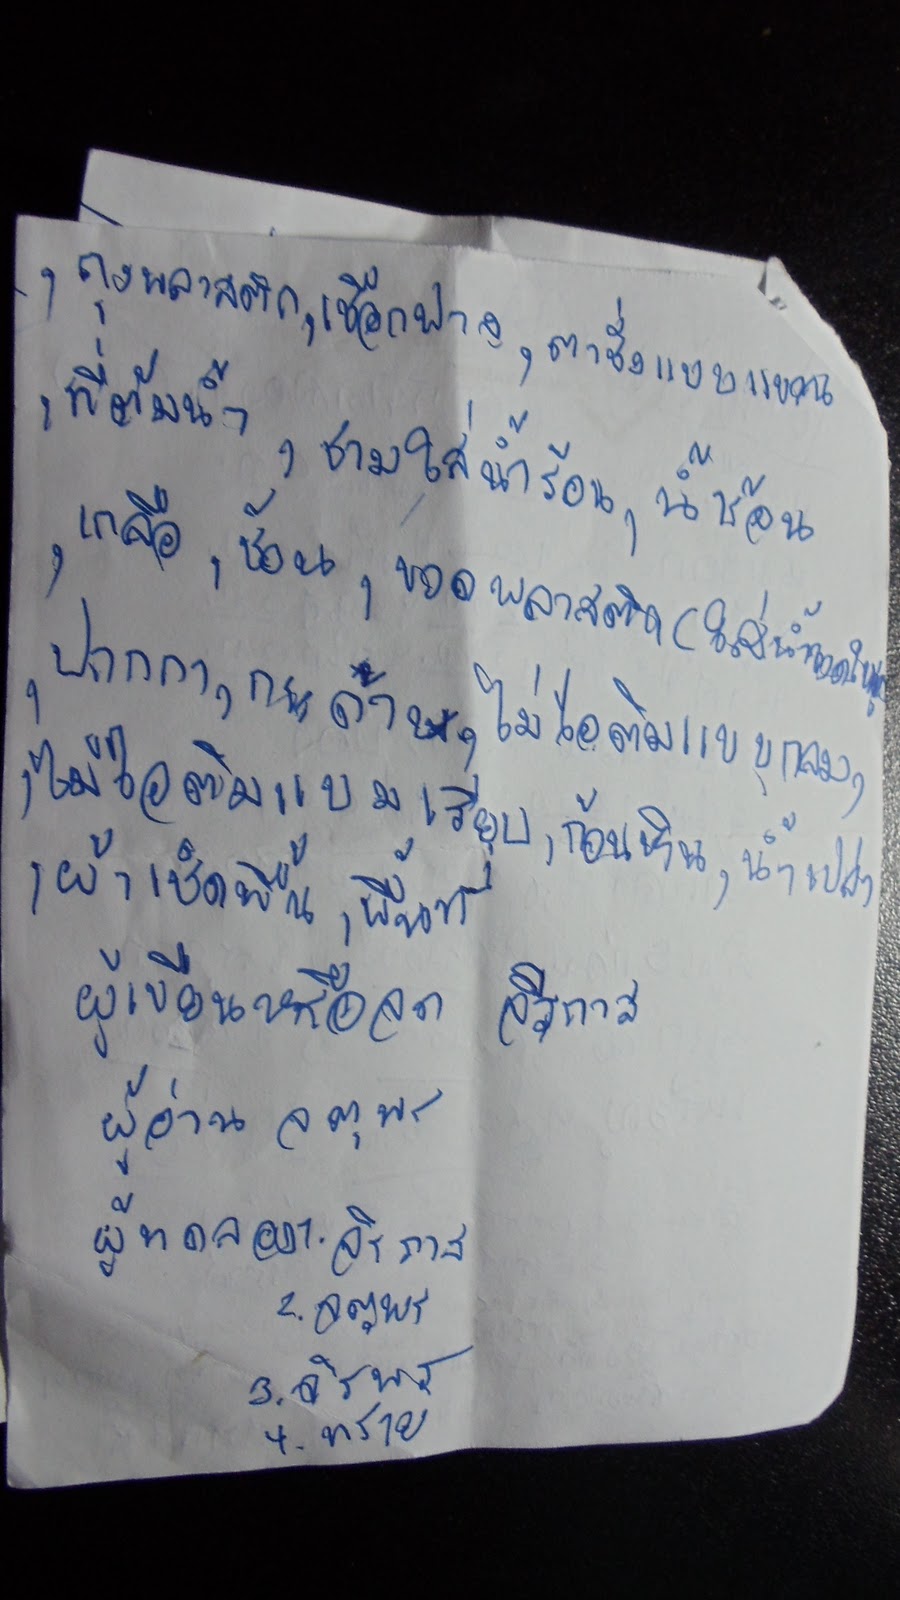 , ถุงพลาสติก, เชือกฟาง, ตาชั่งแบบแขวน
, ที่ต้มน้ำ, ชามใส่น้ำร้อน, น้ำช้อน
, เกลือ, ช้อน, ขวดพลาสติก (ใส่น้ำ
, ปากกา, ด้าย, ไม้ไอติมแบบกลม,
, ไม้ไอติมแบบเรียบ, ก้อนหิน, น้ำเปล่า
, ผ้าเช็ดพื้น, พื้นที่
ผู้เขียน จิรภาส
ผู้อ่าน จตุพร
ผู้ทดลอง 1. จิรภาส
2. จตุพร
3. จิรพร
4. ทราย